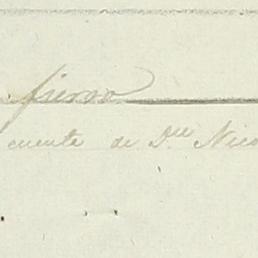 fierro
cuenta de Dn Nico